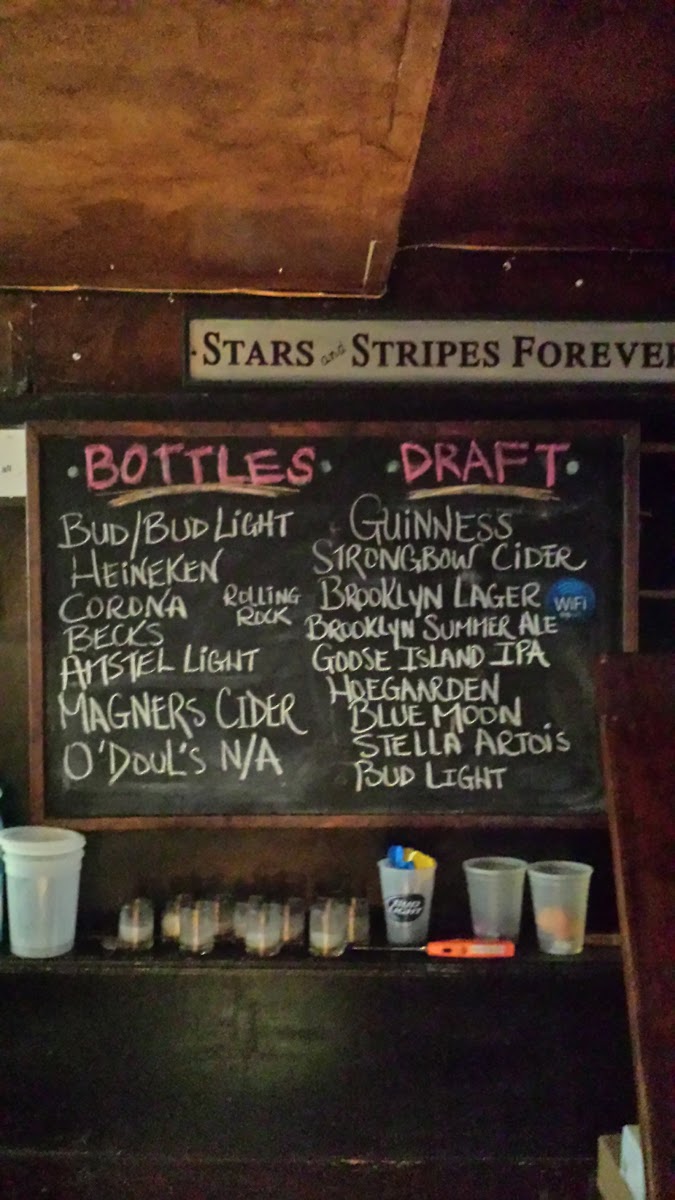 STARS and STRIPES FOREVER
all
BOTTLES
BUD/BUD LIGHT
HEINEKEN
CORONA
ROLLING
ROCK
BECKS
AMSTEL LIGHT
MAGNERS CIDER
O'DOUL'S N/A
DRAFT
GUINNESS
STRONGBOW CIDER
BROOKLYN LAGER
BROOKLYN SUMMER ALE
GOOSE ISLAND IPA
HOEGAARDEN
BLUE MOON
STELLA ARTOIS
BUD LIGHT
WiFi
BUD
LIGHT